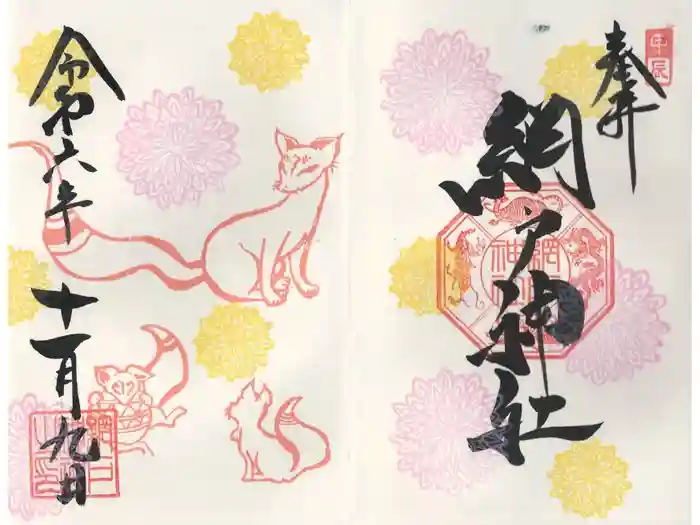 甲辰
奉拝
網戸神社
令和六年
十一月九日